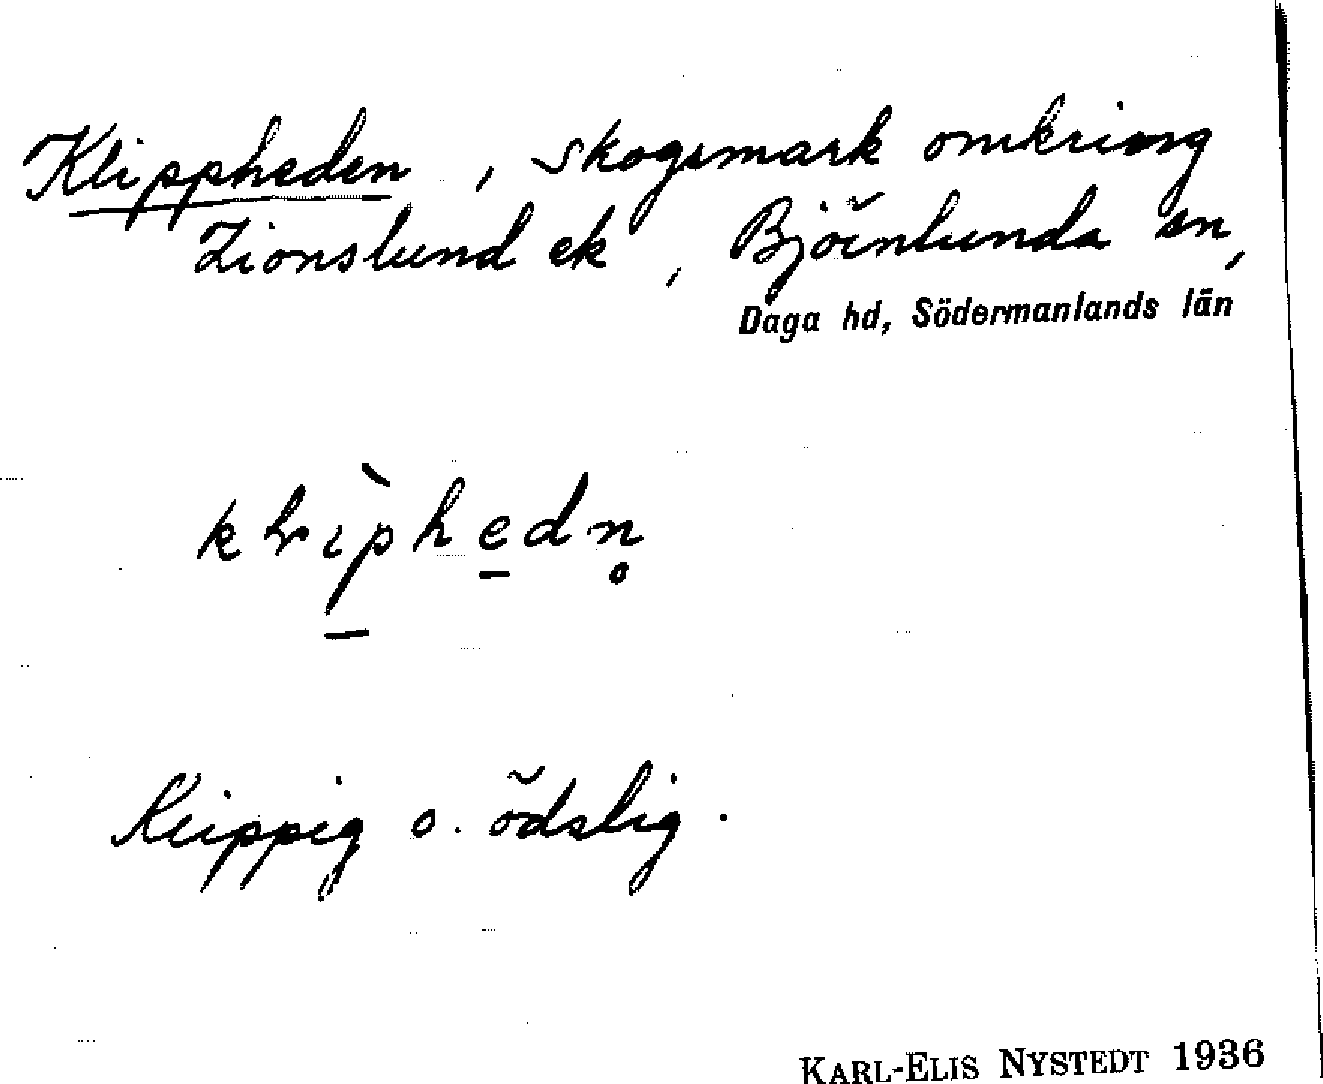 Klippheden, skogsmark omkring
Zionslund ek, Björnlunda sn,
Daga hd, Södermanlands län
klìphedn̥
Klippig o. ödslig.
KARL-ELIS NYSTEDT 1936